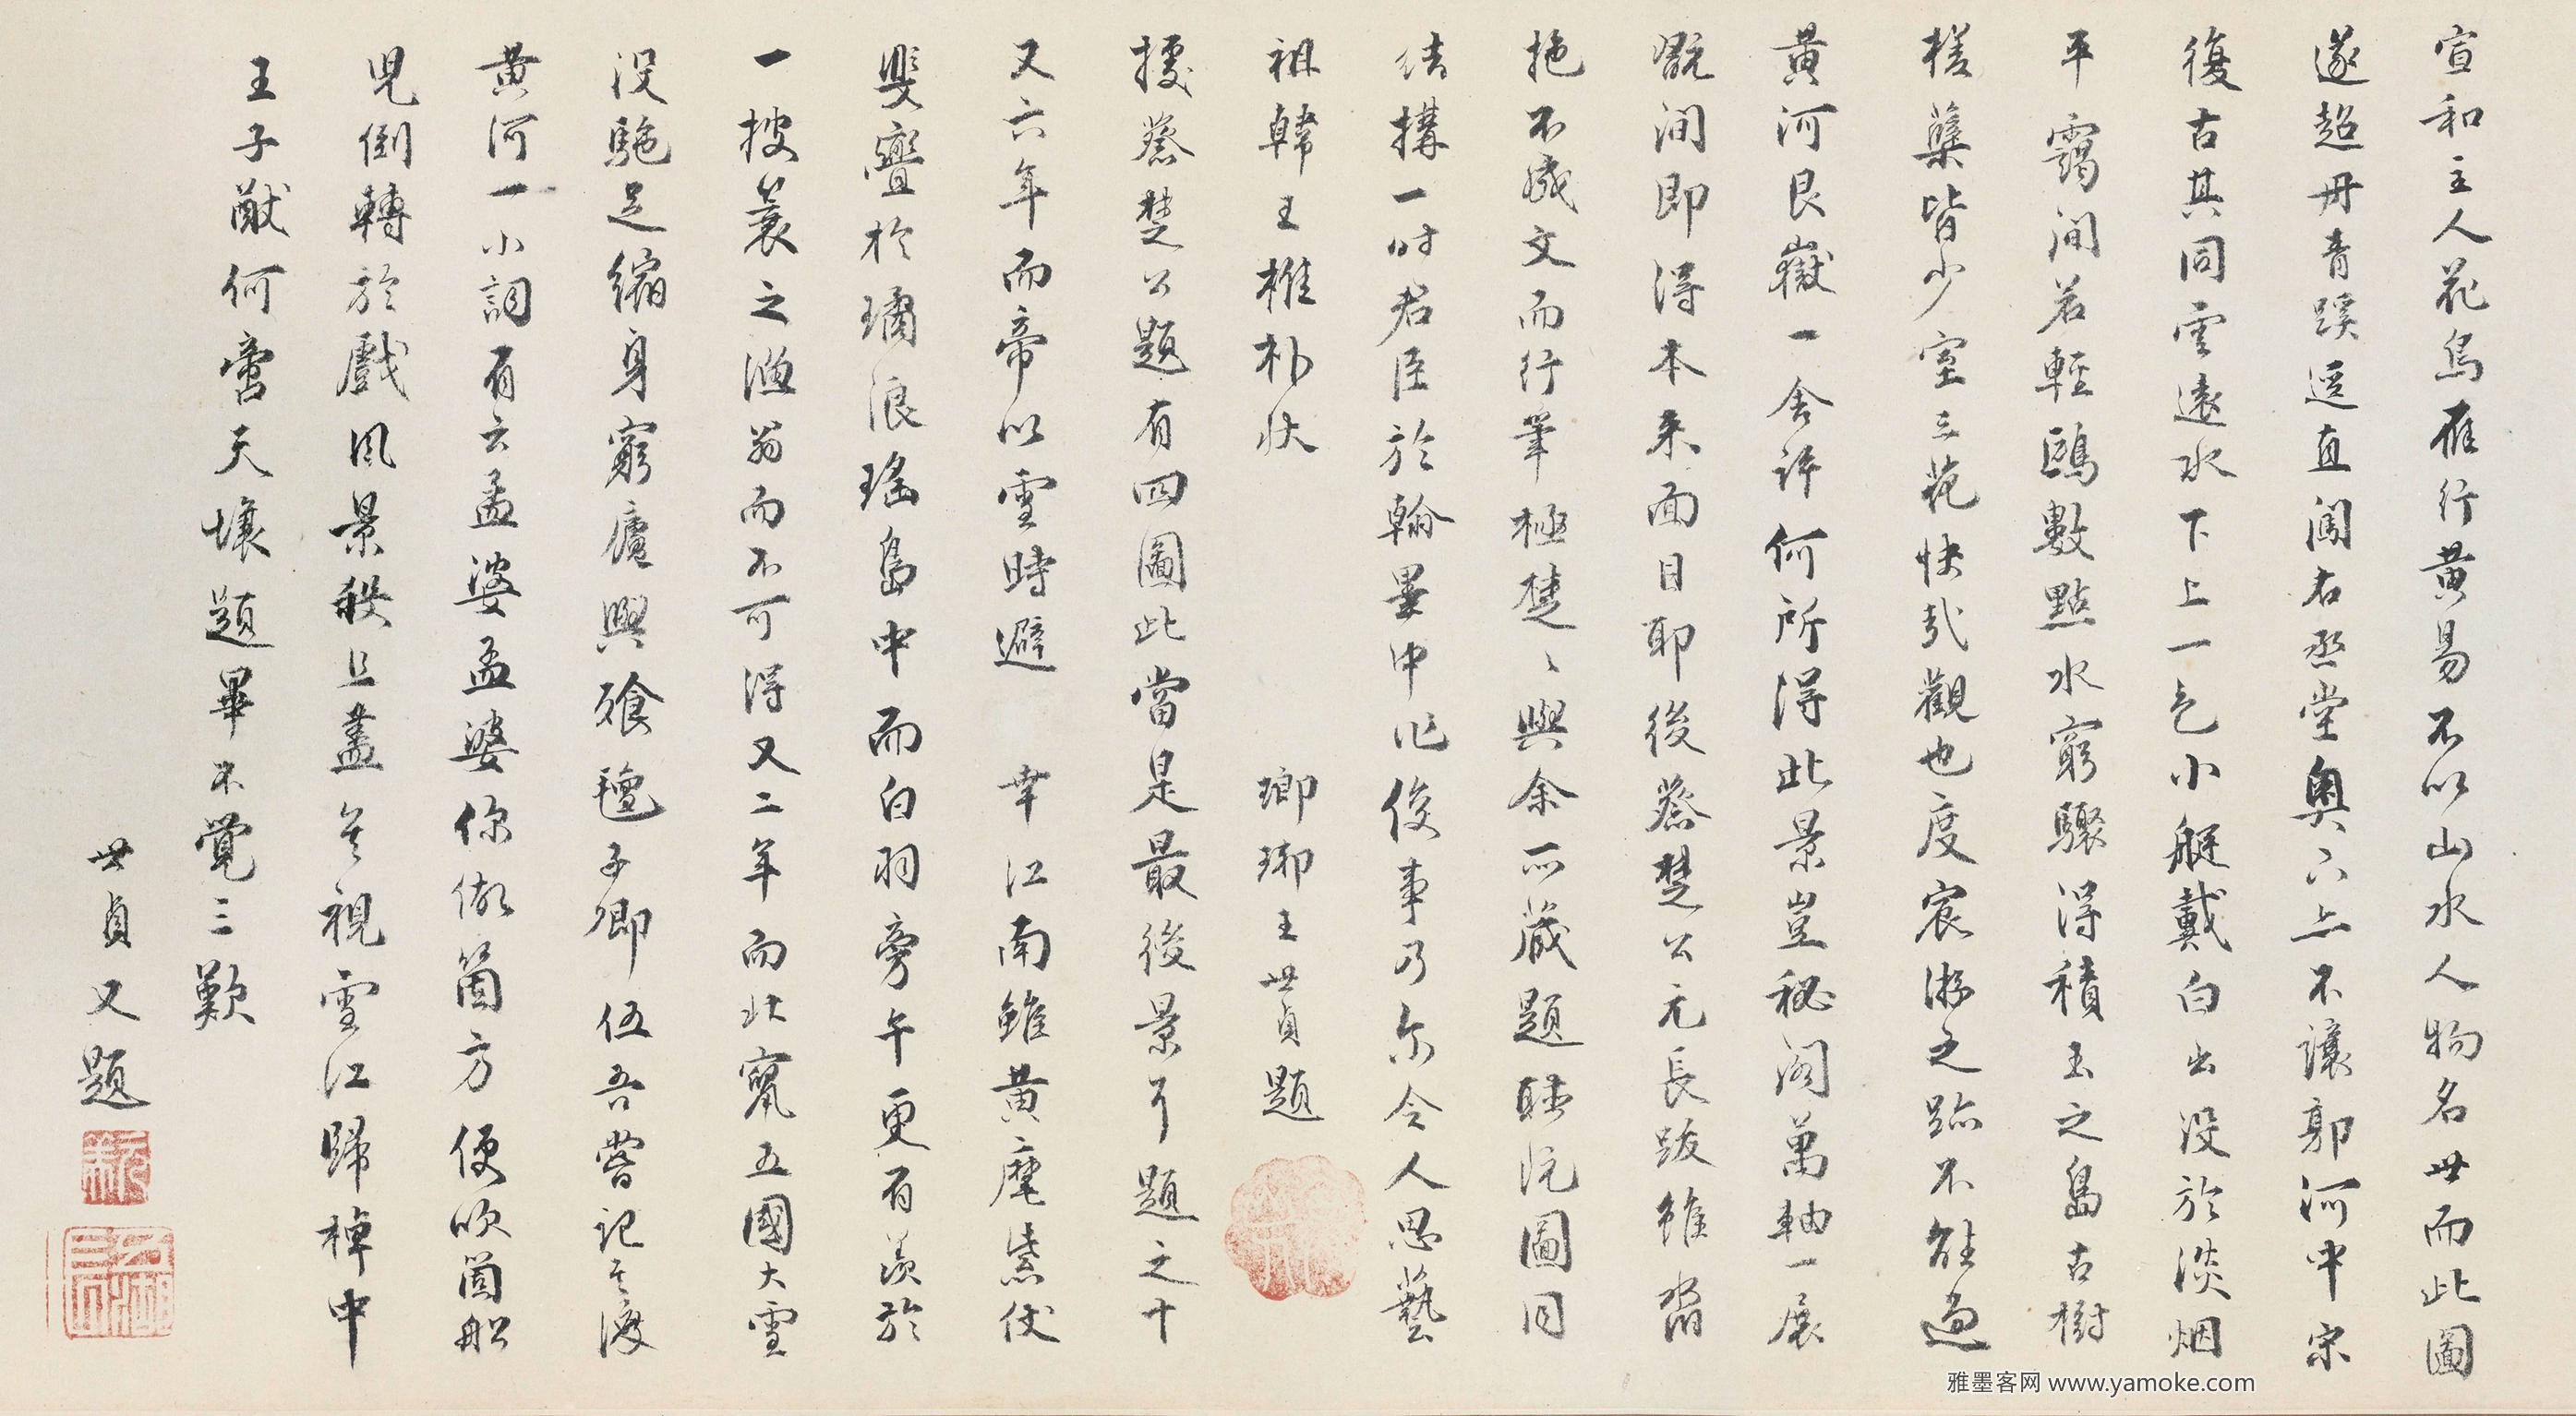 宣和主人花鳥雁行黄易不以山水人物名世而此圖
遂超丹青蹊逕直闖右丞堂奥下上不讓郭河中宋
復古其同雲遠水下上一色小艇戴白出没於淡烟
平靄間若輕鷗數點水窮驟得積玉之島古樹
槎蘖皆少室三花快哉觀也度宸游之跡不能過
黄河艮嶽一舍許何所得此景豈秘閣萬軸一展
翫間即得本来面目耶後蔡楚公元長跋雖沓
拖不成文而行筆極楚楚與余所藏題聴阮圖同
結搆一時君臣於翰墨中作俊事乃尔令人思藝
祖韓王椎朴状
瑯琊王世貞題
據蔡楚公題有四圖此當是最後景耳題之十
又六年而帝以雪時避 幸江南雖黄麾紫仗
斐亹於璚浪瑶島中而白羽旁午更有羨於
一披蓑之漁翁而不可得又二年而北竄五國大雪
没駞足縮身窮廬與飡氊子卿伍吾嘗記其渡
黄河一小詞有云孟婆孟婆你做箇方便吹箇船
児倒轉於戲風景殺且盡矣視雪江歸棹中
王子猷何啻天壤題畢不覺三歎
世貞又題
雅墨客网 www.yamoke.com